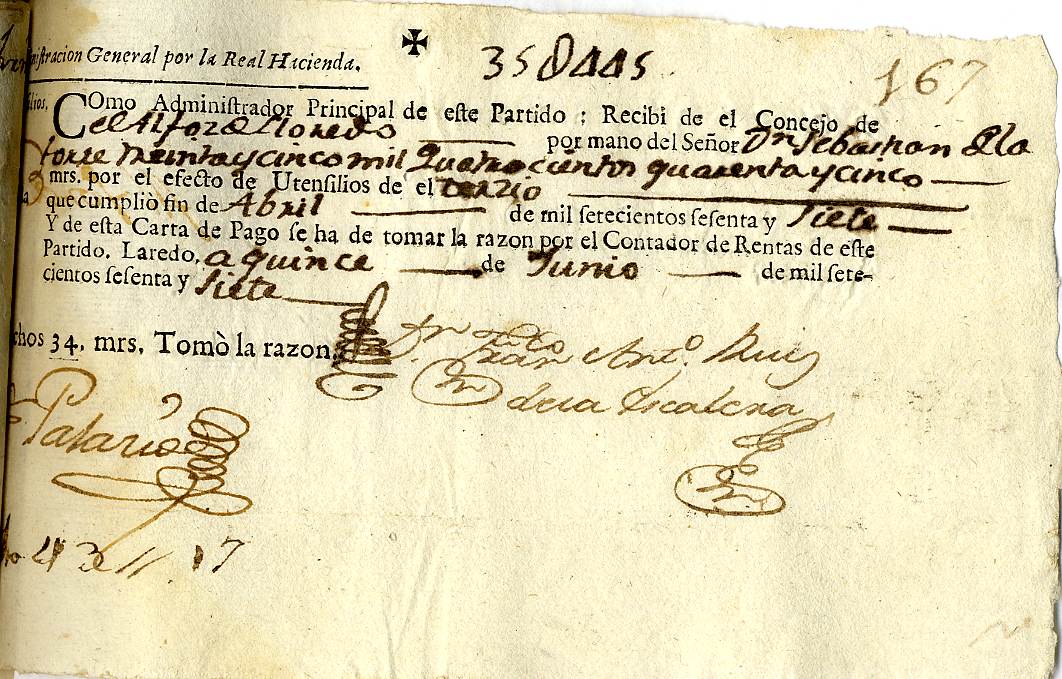 ✠
niſtracion General por la Real Hacienda.
35U445
167
ſilios.
COmo Adminiſtrador Principal de eſte Partido; Recibi de el Concejo de
el Alfoz de Lloredo por mano del Señor Dn. Sebastian de la
torre treinta y cinco mil quatro cientos quarenta y cinco
mrs. por el efecto de Utenſilios de el terzio
que cumpliò fin de Abril de mil ſetecientos ſeſenta y siete
Y de eſta Carta de Pago ſe ha de tomar la razon por el Contador de Rentas de eſte
Partido. Laredo, a quince de Junio de mil ſete-
cientos ſeſenta y siete
chos 34. mrs. Tomò la razon.
Dn. Fran.co Ant.o Ruiz
de la Escalera